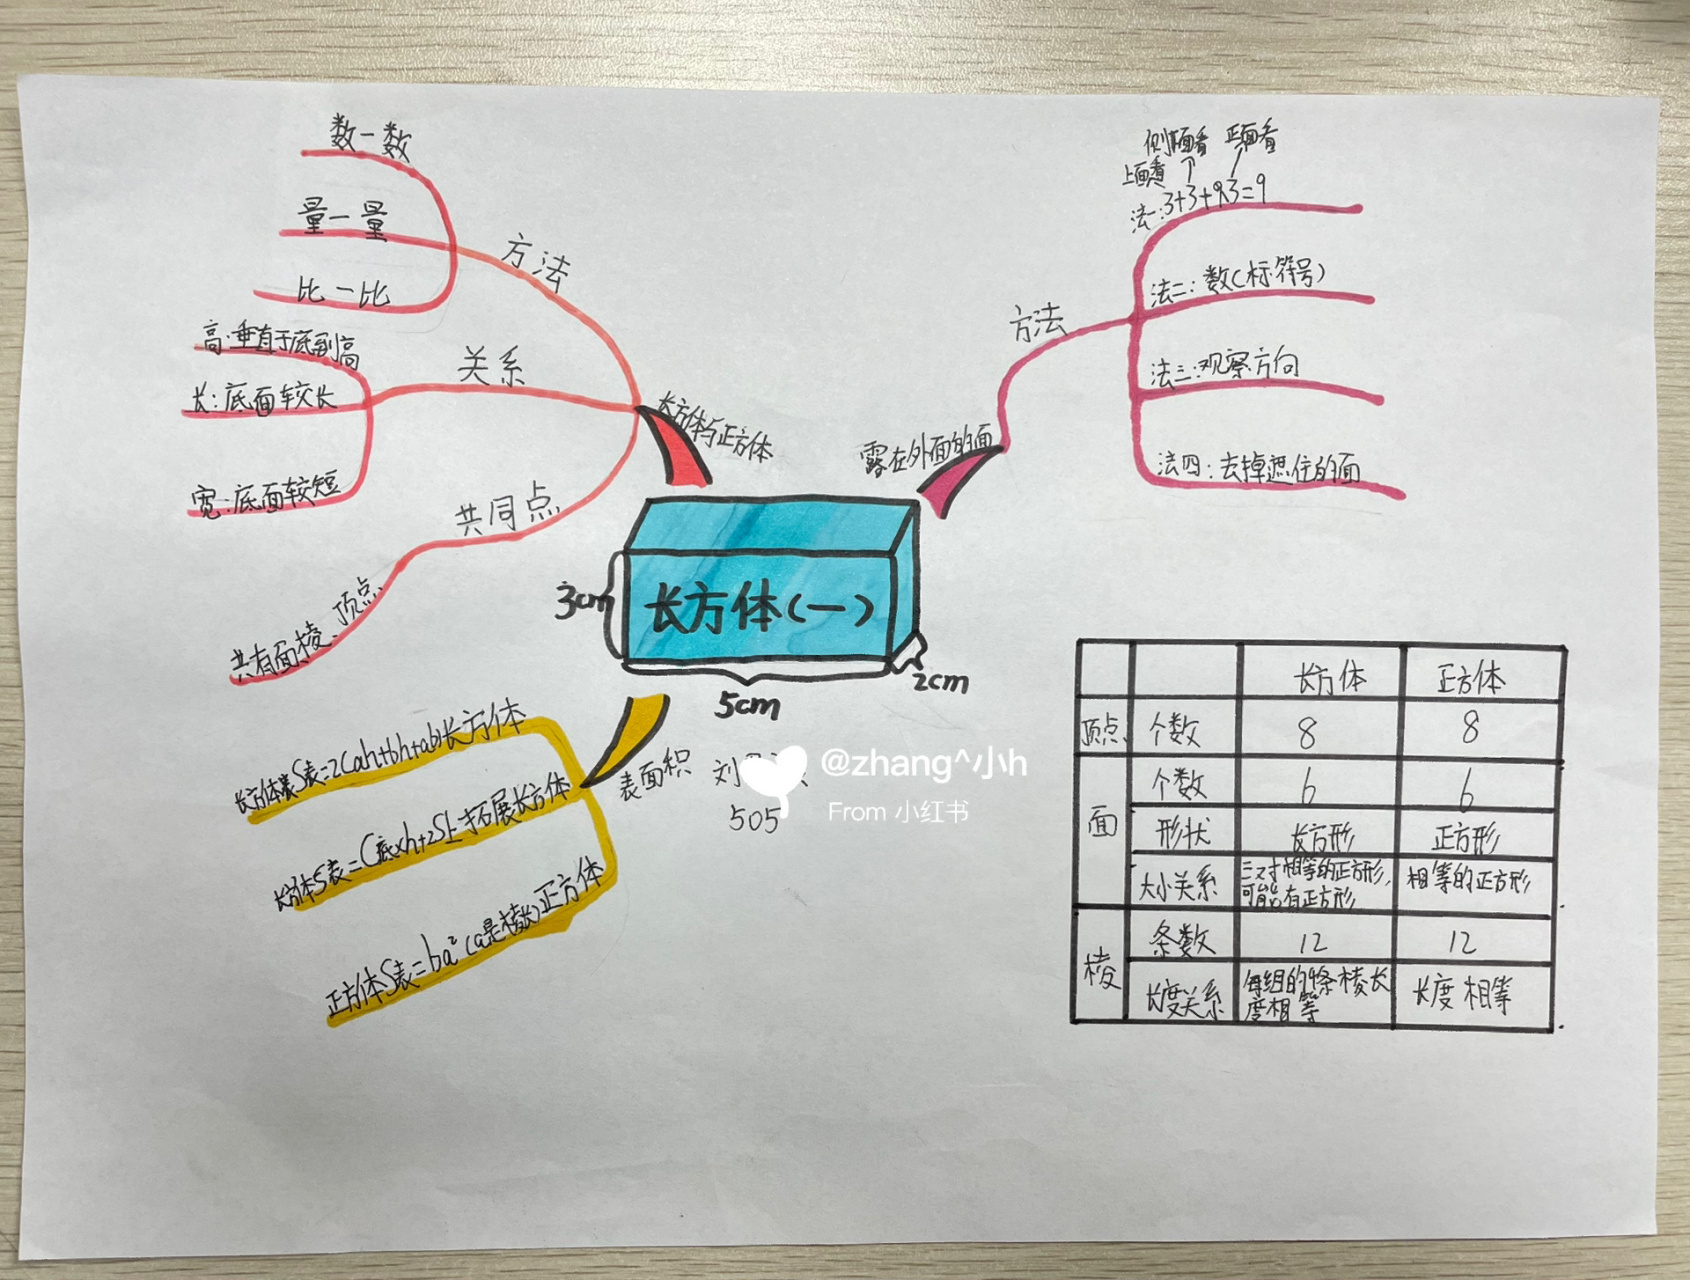 数一数
量一量
比一比
方法
高:垂直于底到高
长:底面较长
宽:底面较短
关系
共同点
共有面棱、顶点
长方体与正方体
露在外面的面
方法
侧面看 正面看
上面看
法一:3+3+3=9
法二:数(标符号)
法三:观察方向
法四:去掉遮住的面
长方体(一)
3cm
5cm
2cm
表面积
长方体S表=2(ah+bh+ab)长方体
长方体S表=C底xh+2S上拓展长方体
正方体S表=6a²(a是棱长)正方体
刘
505
@zhang^小h
From 小红书
长方体 正方体
顶点 个数 8 8
面 个数 6 6
形状 长方形 正方形
大小关系 三对相等的正方形,可能有正方形 相等的正方形
棱 条数 12 12
长度关系 每组的4条棱长度相等 长度相等